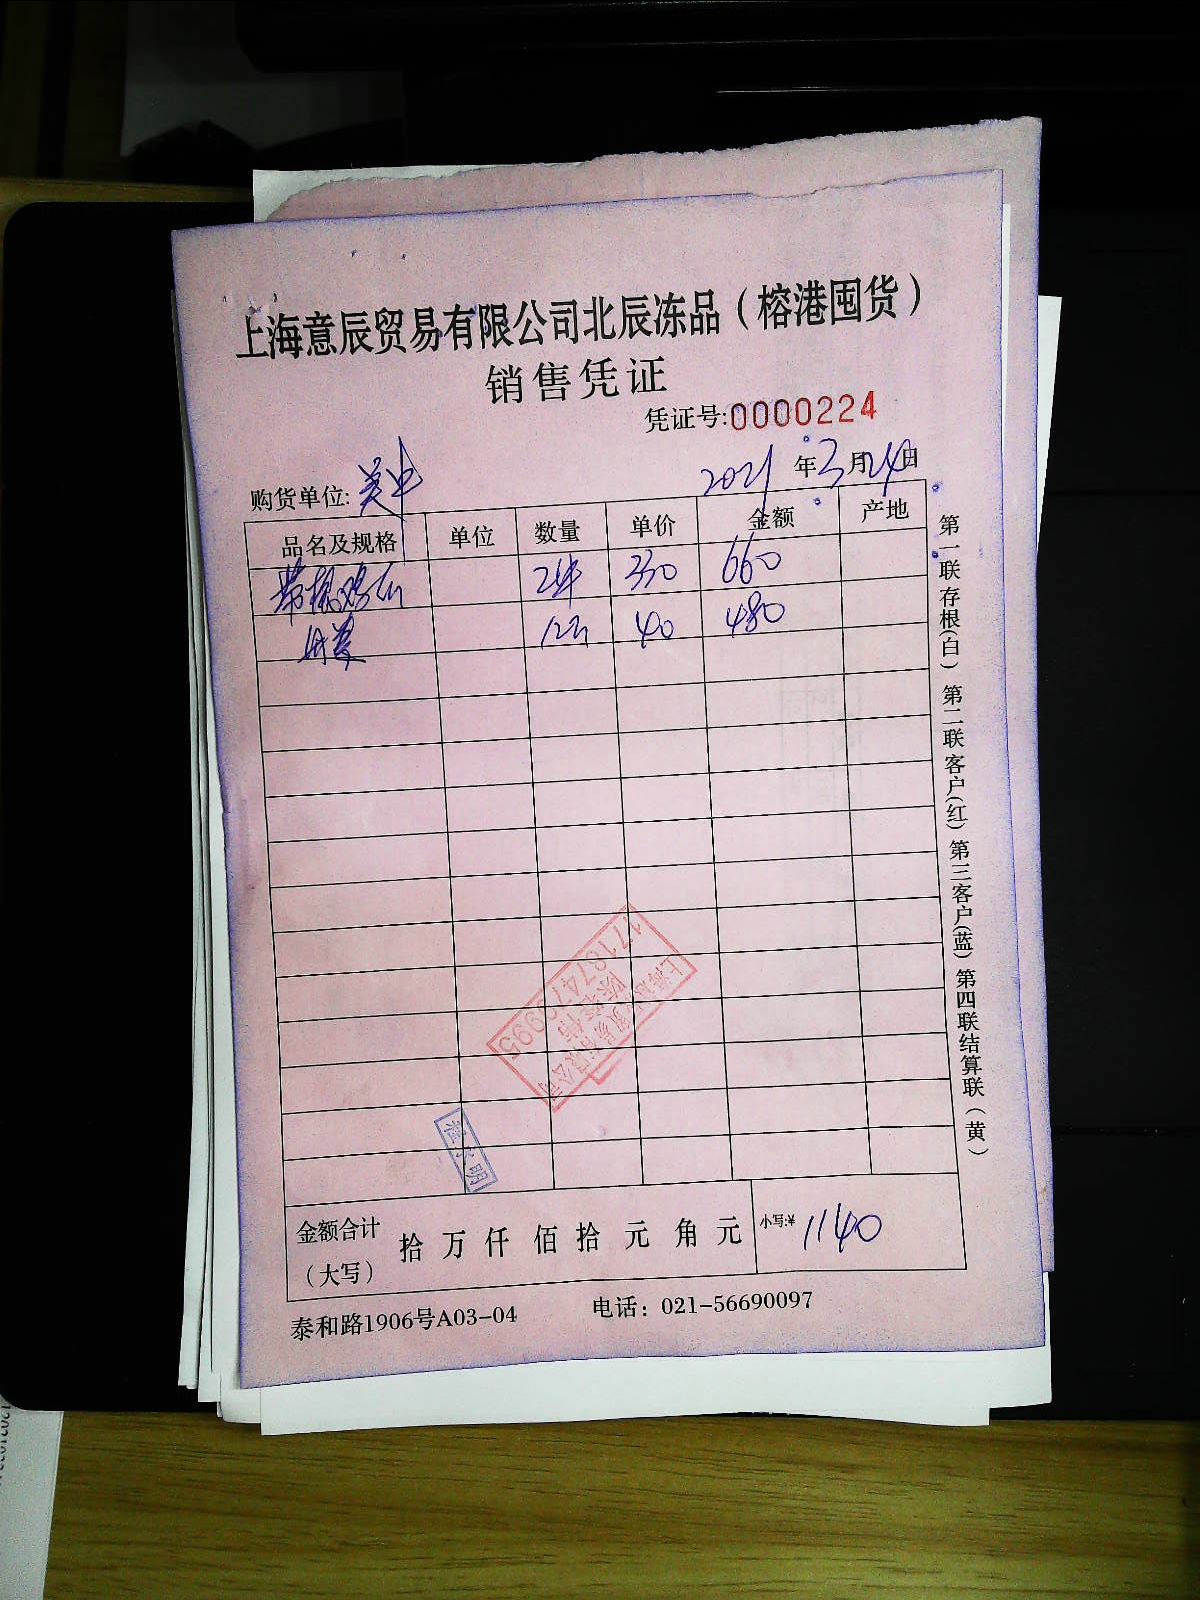 上海意辰贸易有限公司北辰冻品（榕港囤货）
销售凭证
凭证号:0000224
购货单位:
2021年3月24日
品名及规格 单位 数量 单价 金额 产地
2件 330 660
12 40 480
金额合计（大写） 拾 万 仟 佰 拾 元 角 元 小写:¥ 1140
泰和路1906号A03-04 电话：021-56690097
第一联存根(白) 第二联客户(红) 第三客户(蓝) 第四联结算联(黄)
程小明